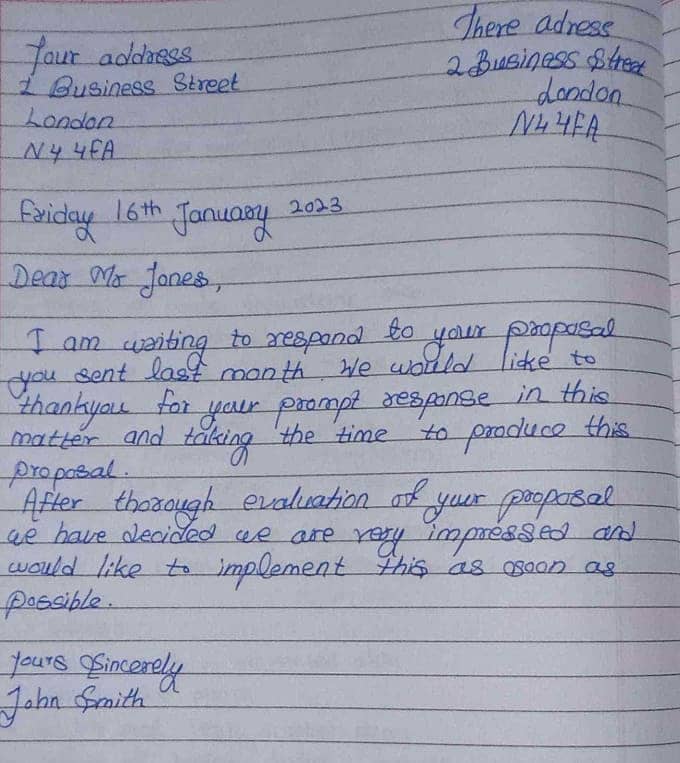 There adress
2 Business Street
London
N4 4FA
Your address
1 Business Street
London
N4 4FA
Friday 16th January 2023
Dear Mr Jones,
I am waiting to respond to your proposal
you sent last month. We would like to
thankyou for your prompt response in this
matter and taking the time to produce this
proposal.
After thorough evaluation of your proposal
we have decided we are very impressed and
would like to implement this as soon as
possible.
Yours Sincerely
John Smith